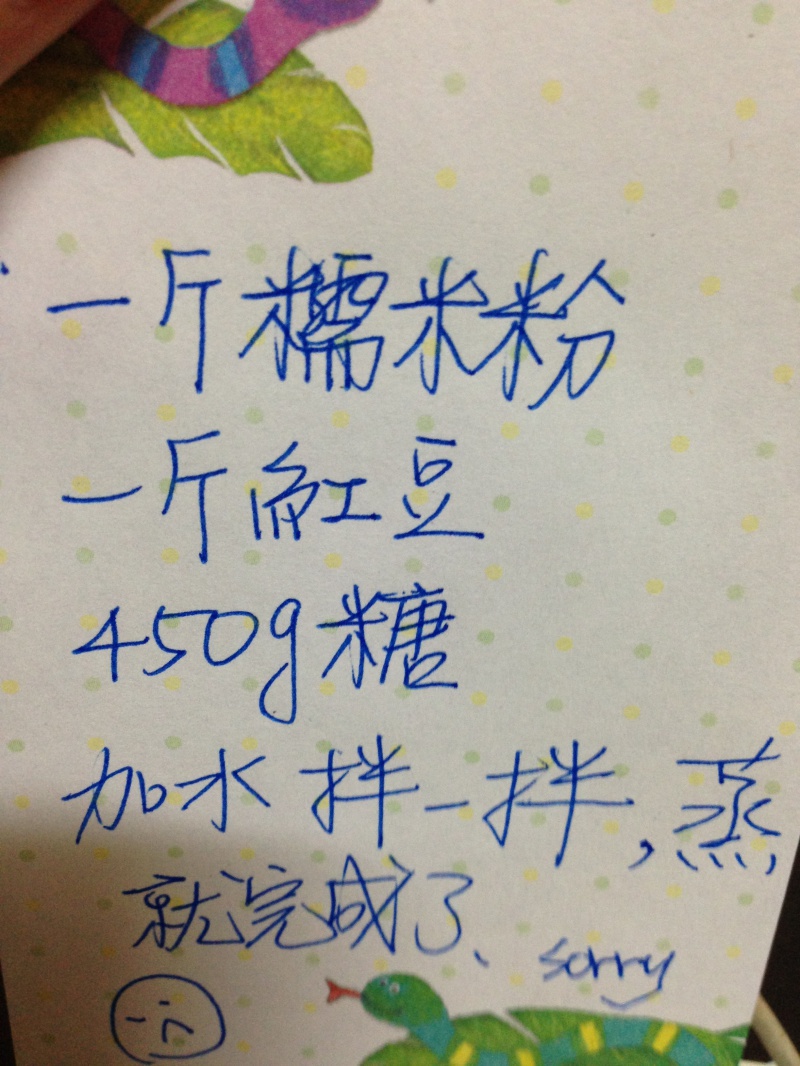 一斤糯米粉
一斤紅豆
450g糖
加水拌一拌,蒸
就完成了、sorry